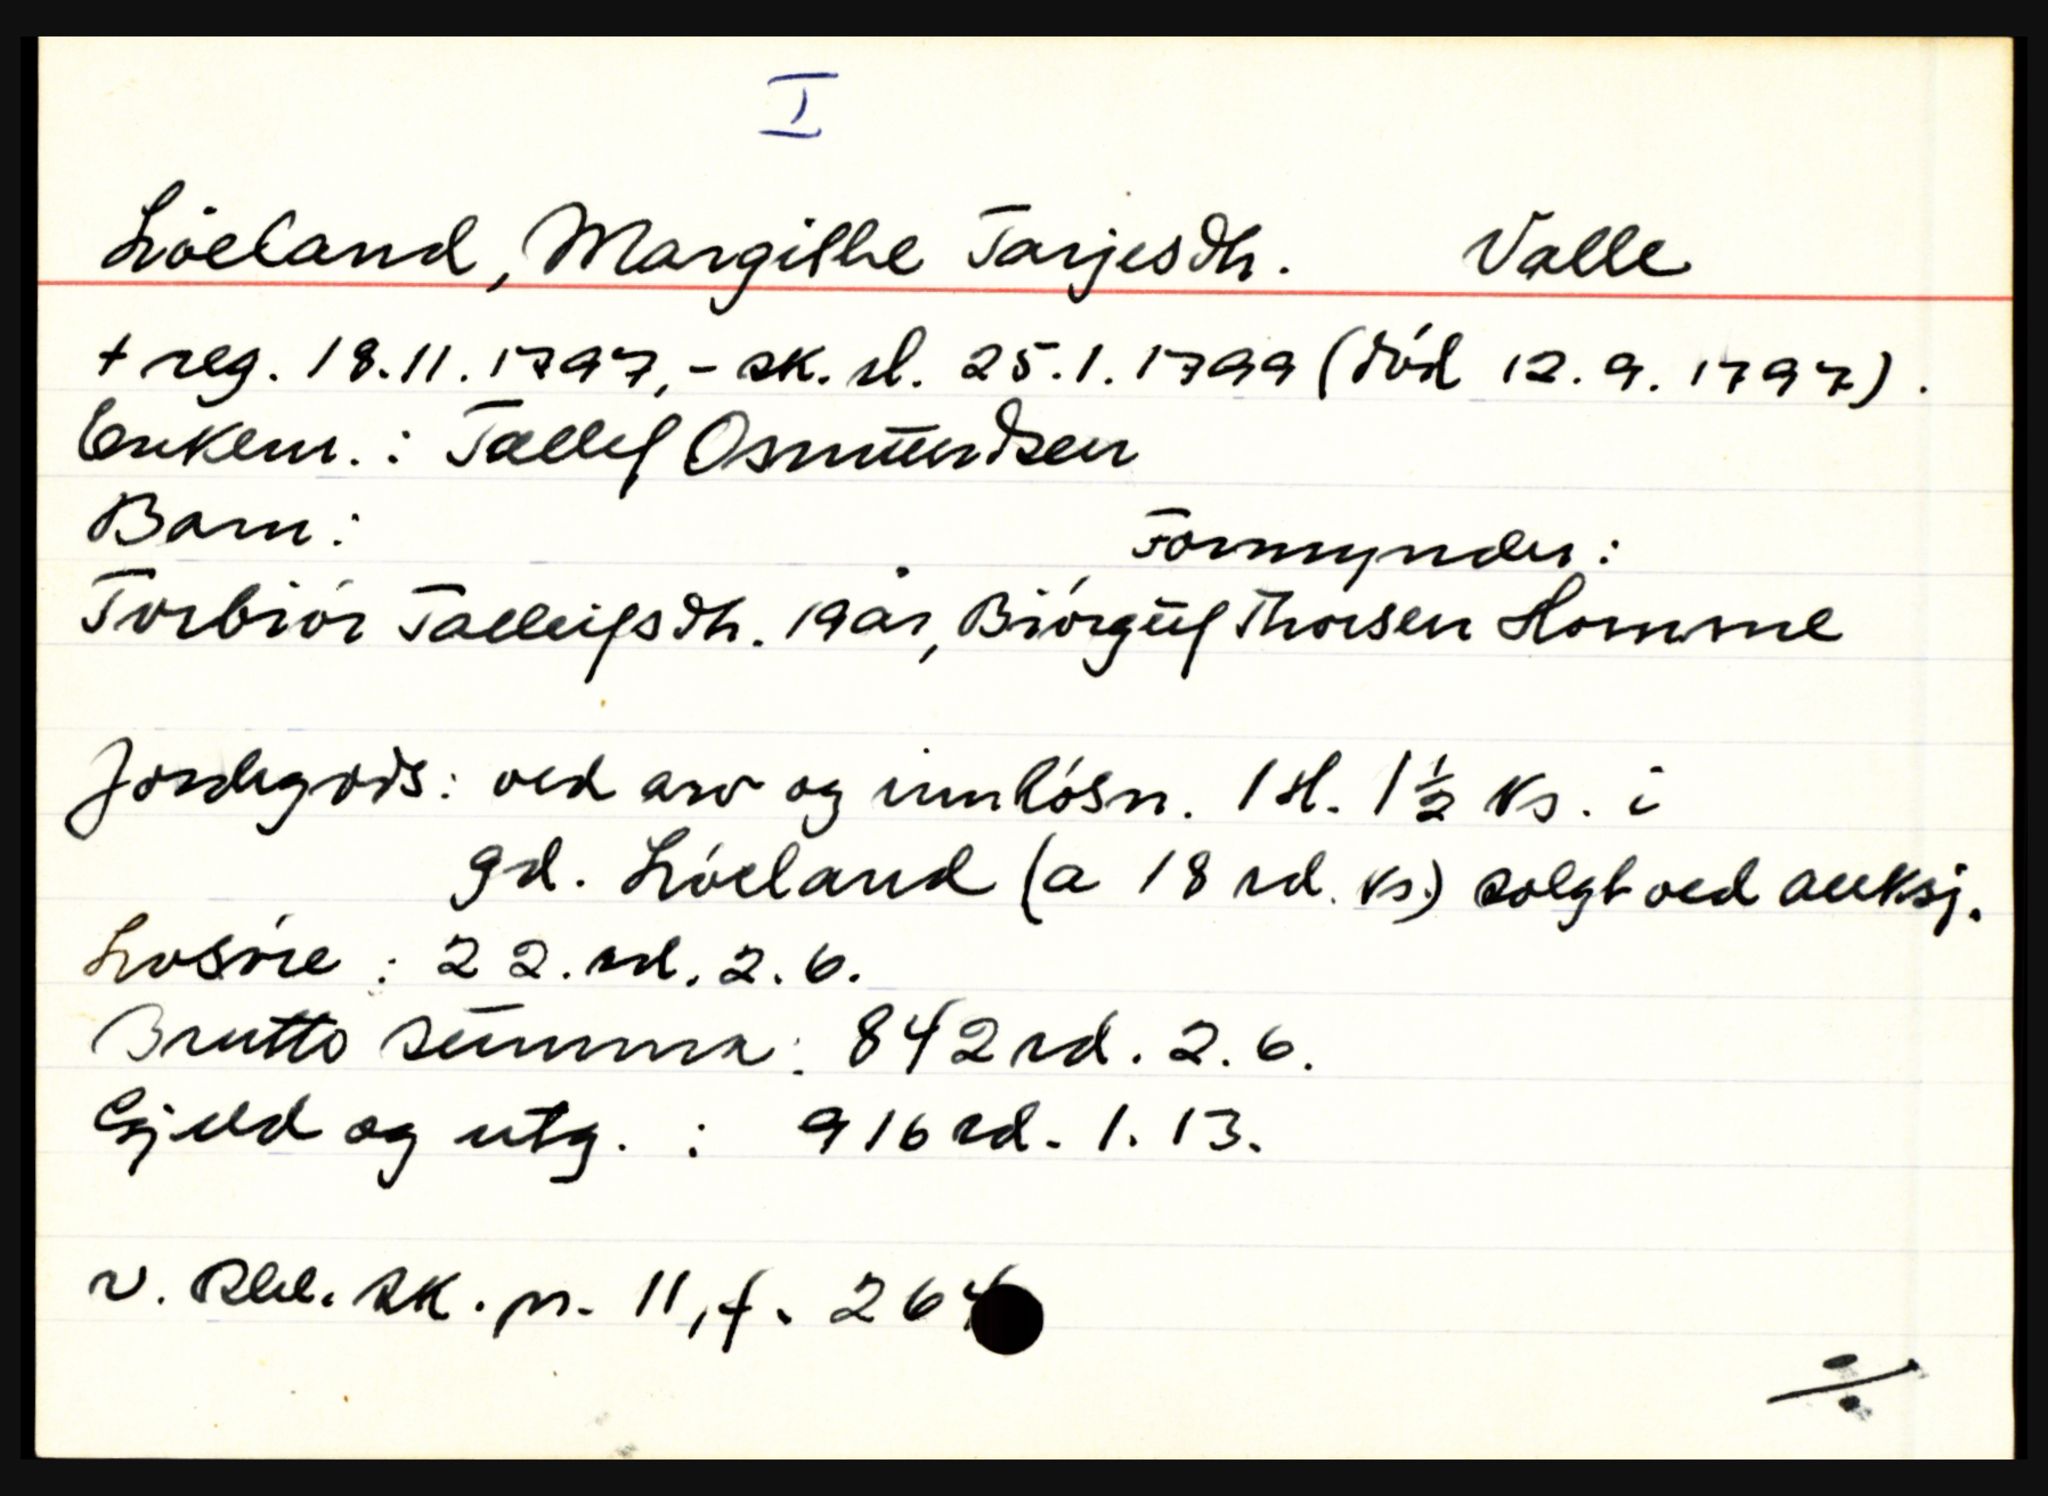 I
Löeland, Margithe Tarjesdtr. Valle
+ reg. 18.11.1797,- sk. sl. 25.1.1799 (död 12.9.1797).
Enkem.: Tallef Osmundsen
Barn:
Formynder:
Torbiör Talleifsdtr. 19 år, Biörguf Thorsen Homme
Jordegods: ved arv og innlösn. 1 H. 1½ ks. i
gd. Löeland (a 18 rd. ks.) solgt ved auksj.
Lösöre: 22. rd. 2. 6.
Brutto summa: 842 rd. 2. 6.
Gjeld og utg.: 916 rd. 1. 13.
v. Rbl. sk. pr. 11, f. 264
%